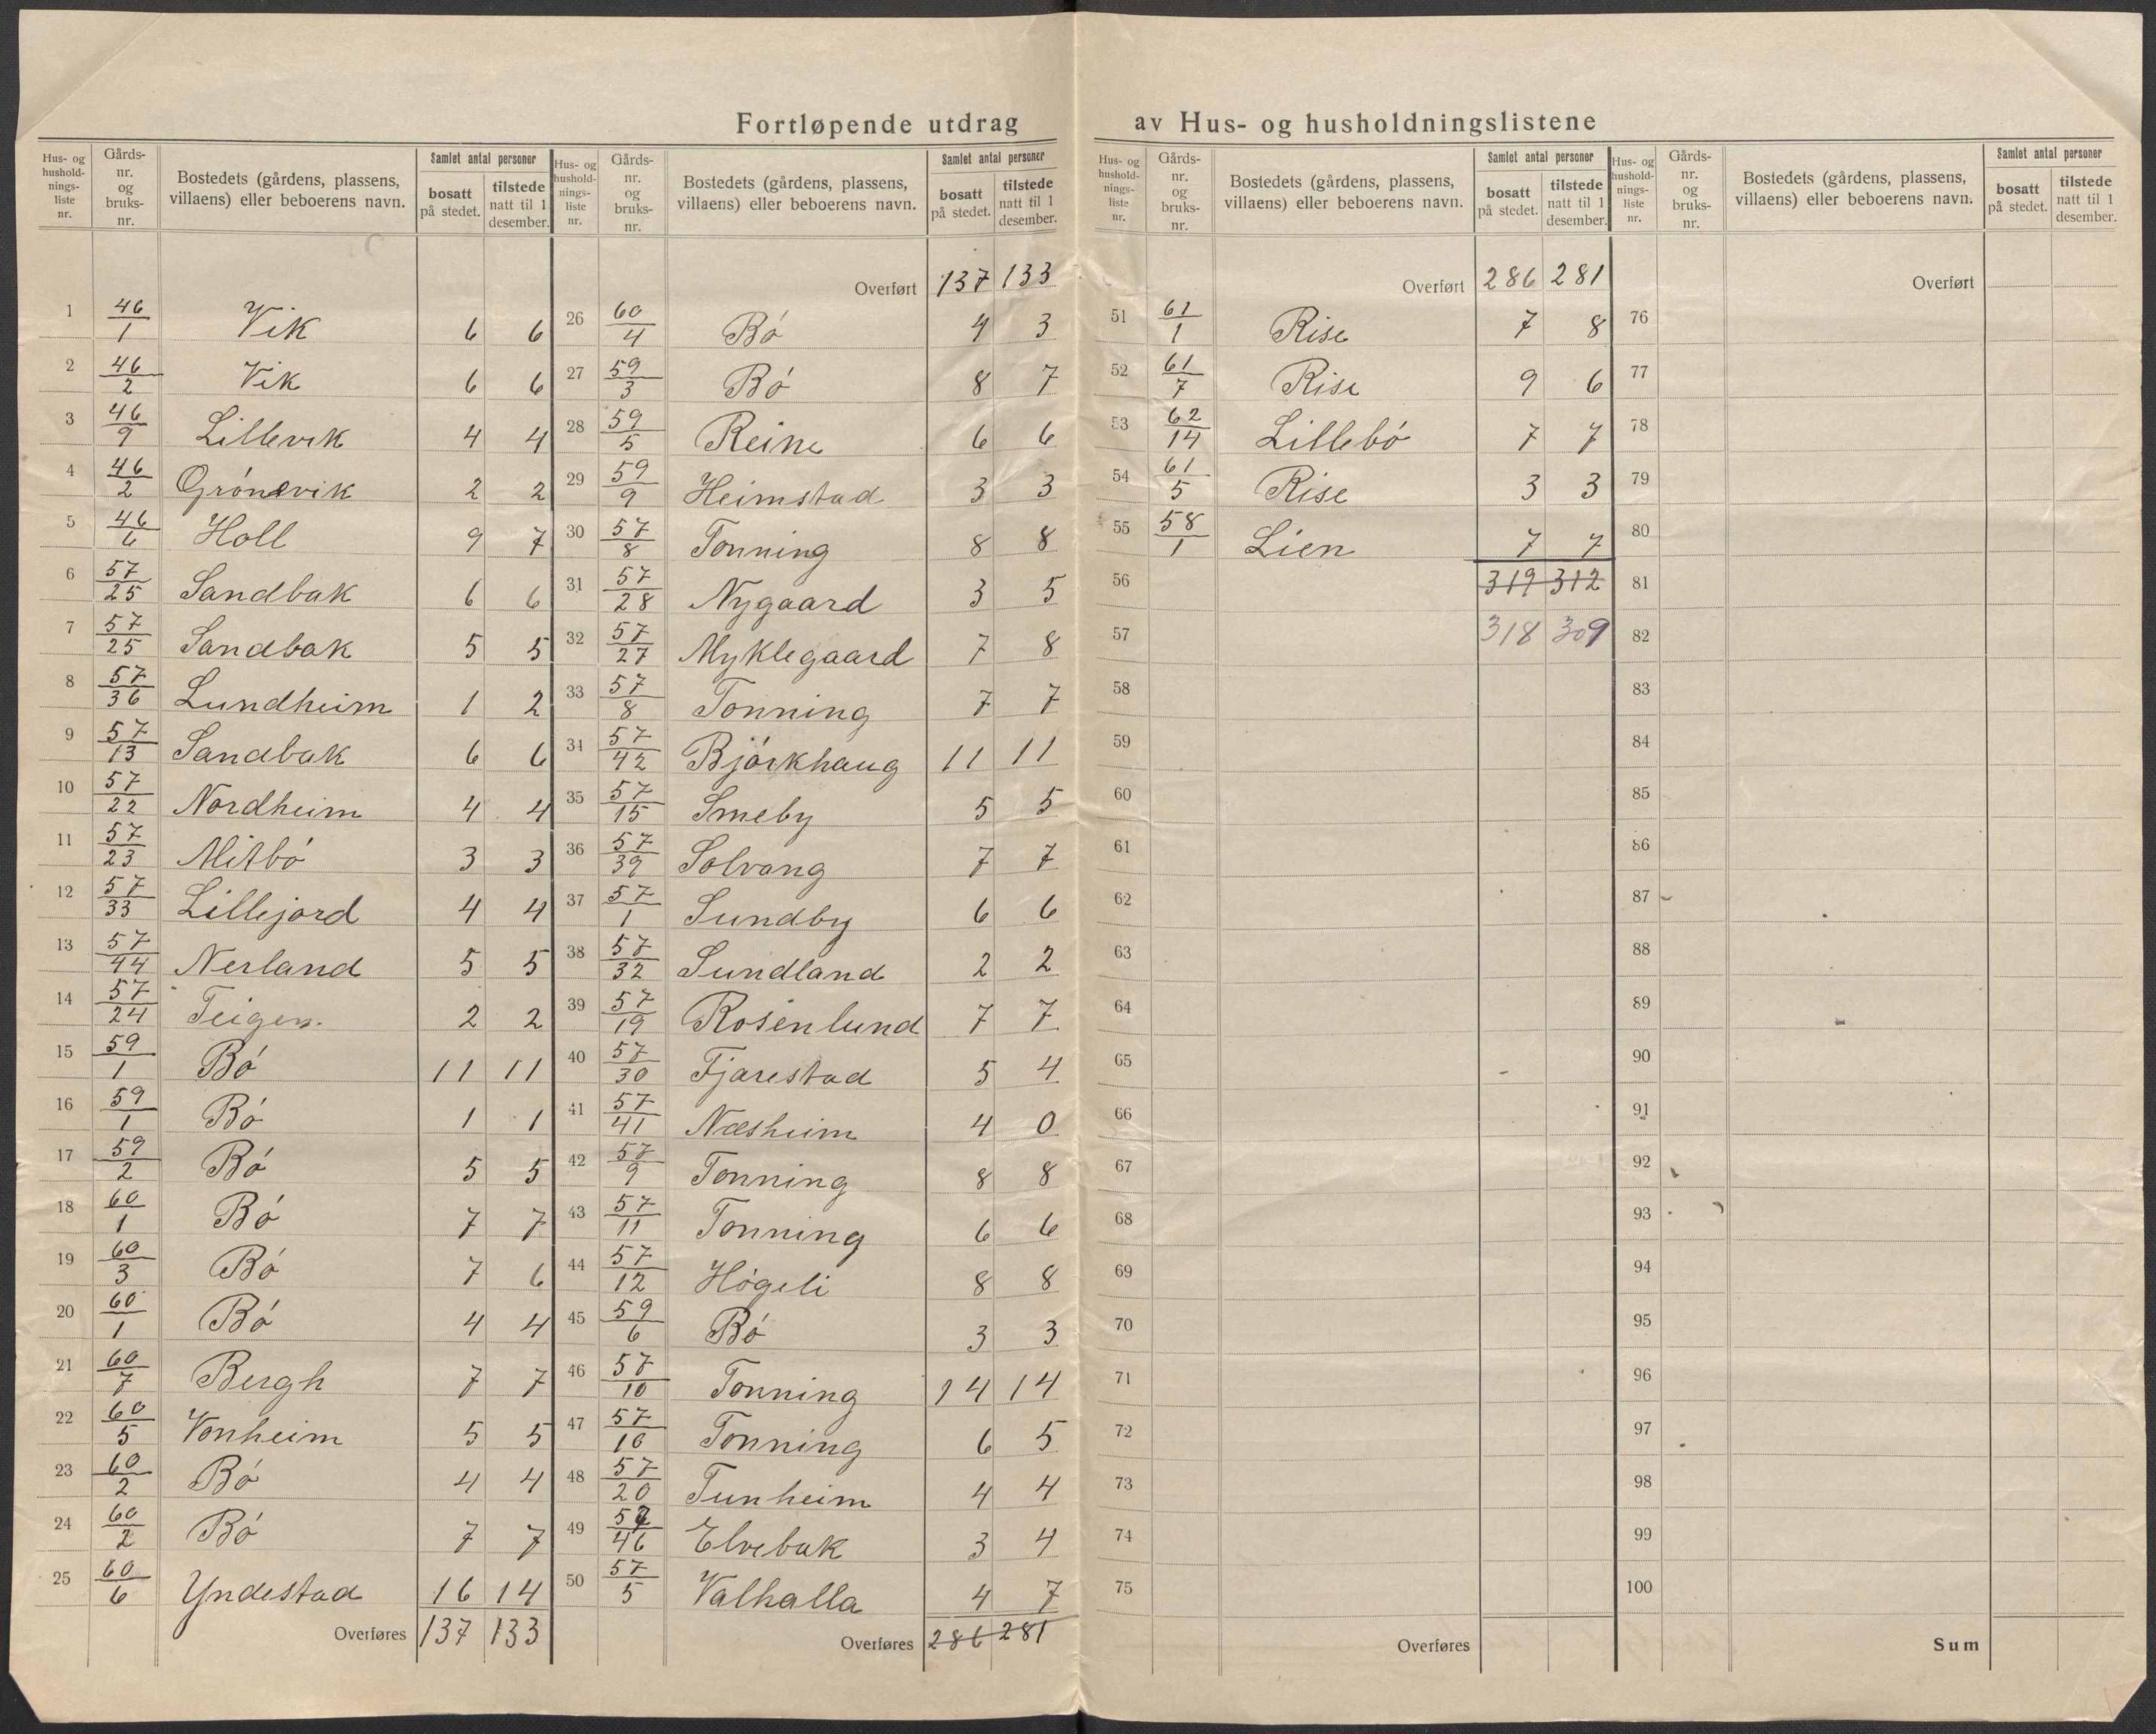 Fortløpende utdrag av Hus- og husholdningslistene
Hus- og husholdnings-liste nr. | Gårds-nr. og bruks-nr. | Bostedets (gårdens, plassens, villaens) eller beboerens navn. | Samlet antal personer | bosatt på stedet. | tilstede natt til 1 desember.
1 46/1 Vik 6 6
2 46/2 Vik 6 6
3 46/9 Lillevik 4 4
4 46/2 Grónevik 2 2
5 46/6 Holl 9 7
6 57/25 Sandbak 6 6
7 57/25 Sandbak 5 5
8 57/36 Lundheim 1 2
9 57/13 Sandbak 6 6
10 57/22 Nordheim 4 4
11 57/23 Mitbó 3 3
12 57/33 Lillejord 4 4
13 57/44 Nerland 5 5
14 57/24 Teigen. 2 2
15 59/1 Bó 11 11
16 59/1 Bó 1 1
17 59/2 Bó 5 5
18 60/1 Bó 7 7
19 60/3 Bó 7 6
20 60/1 Bó 4 4
21 60/7 Bergh 7 7
22 60/5 Vonheim 5 5
23 60/2 Bó 4 4
24 60/2 Bó 7 7
25 60/6 Yndestad 16 14
Overføres 137 133
Hus- og husholdnings-liste nr. | Gårds-nr. og bruks-nr. | Bostedets (gårdens, plassens, villaens) eller beboerens navn. | Samlet antal personer | bosatt på stedet. | tilstede natt til 1 desember.
Overført 137 133
26 60/4 Bó 4 3
27 59/3 Bó 8 7
28 59/5 Reine 6 6
29 59/9 Heimstad 3 3
30 57/8 Tonning 8 8
31 57/28 Nygaard 3 5
32 57/27 Myklegaard 7 8
33 57/8 Tonning 7 7
34 57/42 Bjórkhaug 11 11
35 57/15 Smeby 5 5
36 57/39 Solvang 7 7
37 57/1 Sundby 6 6
38 57/32 Sundland 2 2
39 57/19 Rosenlund 7 7
40 57/30 Fjarestad 5 4
41 57/41 Næsheim 4 0
42 57/9 Tonning 8 8
43 57/11 Tonning 6 6
44 57/12 Högeli 8 8
45 59/6 Bó 3 3
46 57/10 Tonning 14 14
47 57/10 Tonning 6 5
48 57/20 Tunheim 4 4
49 57/46 Elvebak 3 4
50 57/5 Valhalla 4 7
Overføres 286 281
Hus- og husholdnings-liste nr. | Gårds-nr. og bruks-nr. | Bostedets (gårdens, plassens, villaens) eller beboerens navn. | Samlet antal personer | bosatt på stedet. | tilstede natt til 1 desember.
Overført 286 281
51 61/1 Rise 7 8
52 61/7 Rise 9 6
53 62/14 Lillebó 7 7
54 61/5 Rise 3 3
55 58/1 Lien 7 7
56 319 312
57 318 309
58
59
60
61
62
63
64
65
66
67
68
69
70
71
72
73
74
75
Overføres
Hus- og husholdnings-liste nr. | Gårds-nr. og bruks-nr. | Bostedets (gårdens, plassens, villaens) eller beboerens navn. | Samlet antal personer | bosatt på stedet. | tilstede natt til 1 desember.
Overført
76
77
78
79
80
81
82
83
84
85
86
87
88
89
90
91
92
93
94
95
96
97
98
99
100
Sum